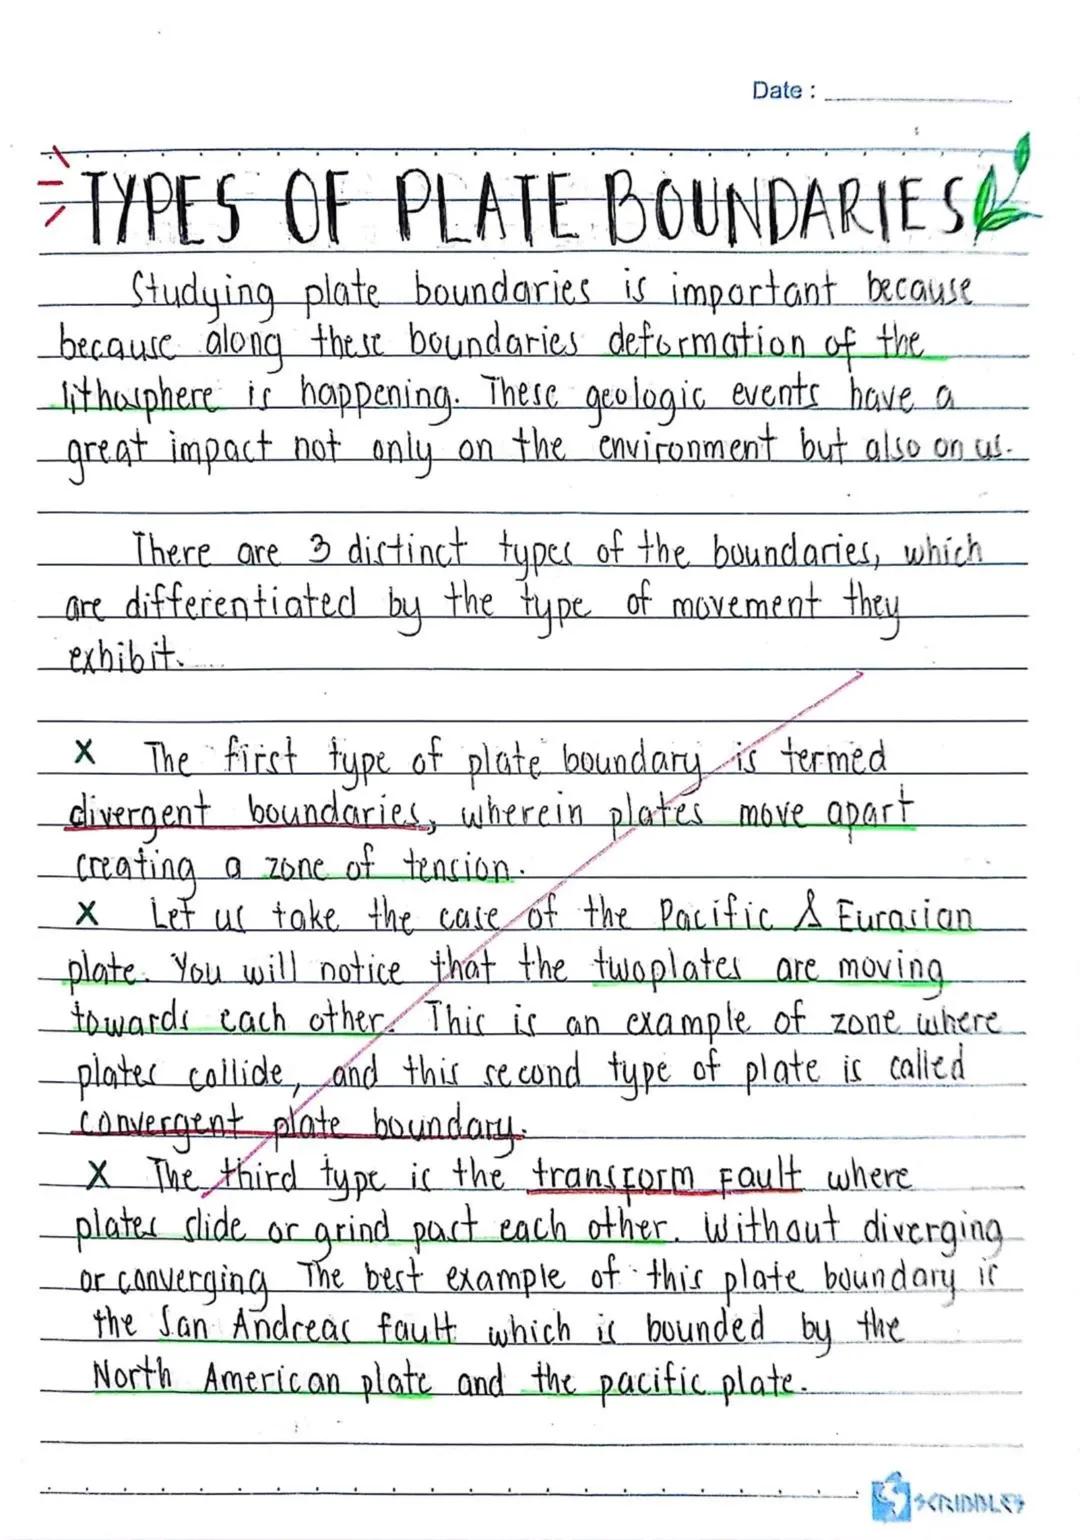 Date :
TYPES OF PLATE BOUNDARIES
Studying plate boundaries is important because
because along these boundaries deformation of the
lithosphere is happening. These geologic events have a
great impact not only on the environment but also on us.
There are 3 distinct types of the boundaries, which
are differentiated by the type of movement they
exhibit.
X The first type of plate boundary is termed
divergent boundaries, wherein plates move apart
creating a zone of tension.
X Let us take the case of the Pacific & Eurasian
plate. You will notice that the two plates are moving
towards each other. This is an example of zone where
plates collide, and this second type of plate is called
convergent plate boundary.
X The third type is the transform fault where
plates slide or grind past each other. Without diverging
or converging The best example of this plate boundary is
the San Andreas fault which is bounded by the
North American plate and the pacific plate.
SCRIBBLES